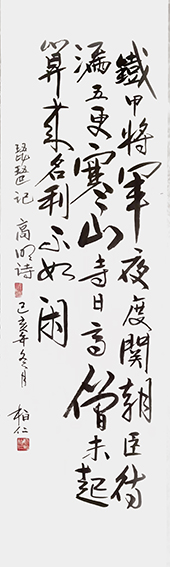 鐵甲將軍夜度關朝臣待
漏五更寒山寺日高僧未起
算來名利不如閑
琵琶記 高明詩 己亥年冬月 柏仁